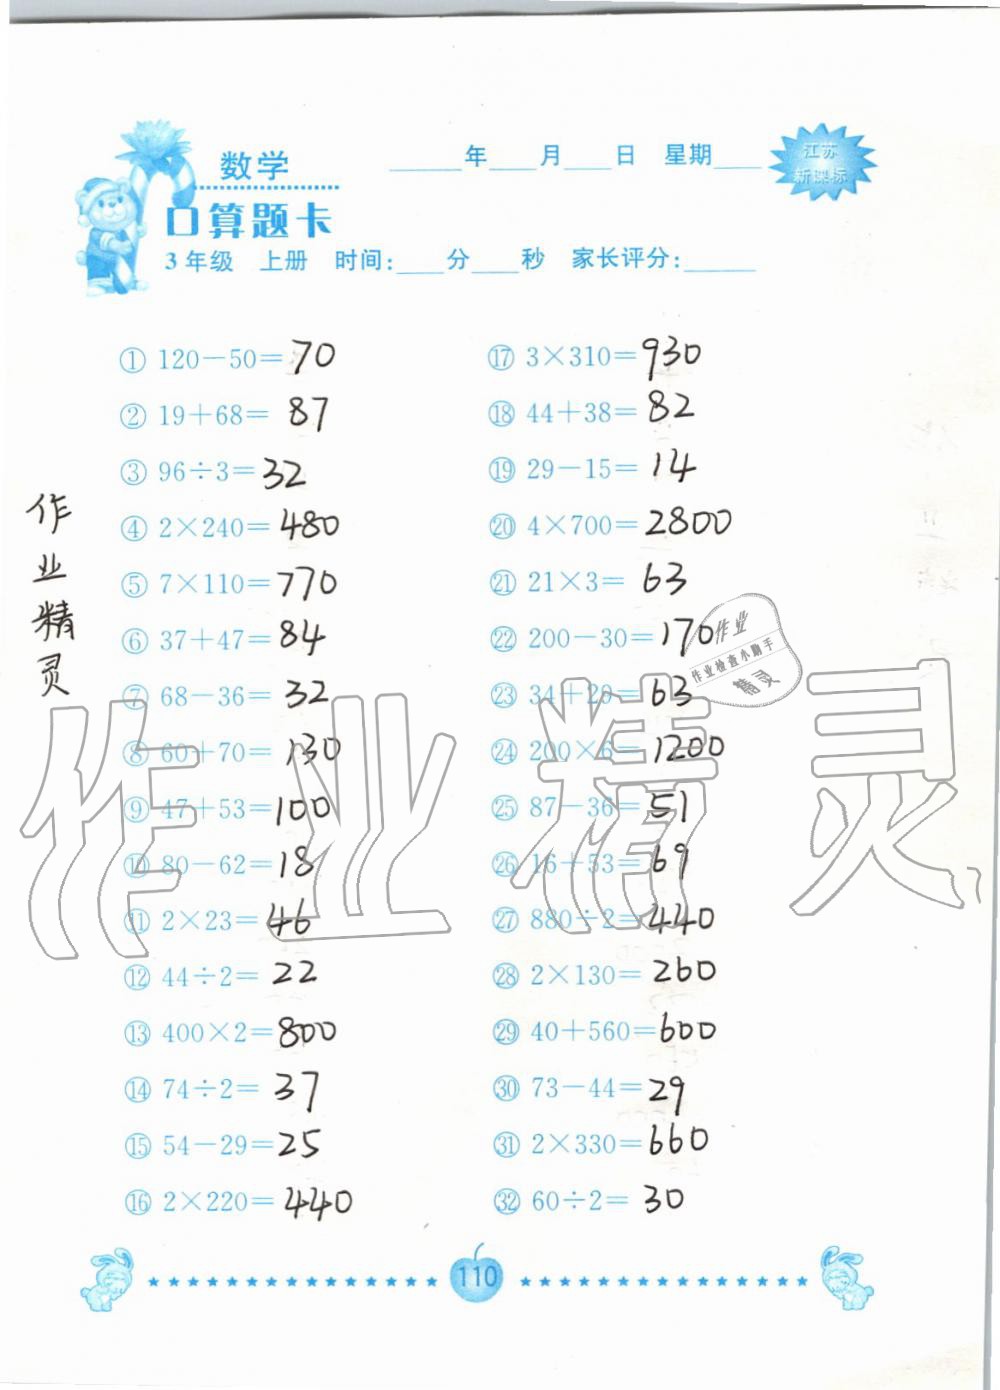 数学
____年____月____日 星期____
江苏
新课标
口算题卡
3年级 上册 时间:____分____秒 家长评分:____
① 120-50=70
② 19+68=87
③ 96÷3=32
④ 2×240=480
⑤ 7×110=770
⑥ 37+47=84
⑦ 68-36=32
⑧ 60+70=130
⑨ 47+53=100
⑩ 80-62=18
⑪ 2×23=46
⑫ 44÷2=22
⑬ 400×2=800
⑭ 74÷2=37
⑮ 54-29=25
⑯ 2×220=440
⑰ 3×310=930
⑱ 44+38=82
⑲ 29-15=14
⑳ 4×700=2800
㉑ 21×3=63
㉒ 200-30=170
㉓ 34+29=63
㉔ 200×6=1200
㉕ 87-36=51
㉖ 16+53=69
㉗ 880÷2=440
㉘ 2×130=260
㉙ 40+560=600
㉚ 73-44=29
㉛ 2×330=660
㉜ 60÷2=30
作业精灵
作业
作业检查小助手
精灵
作业精灵
110